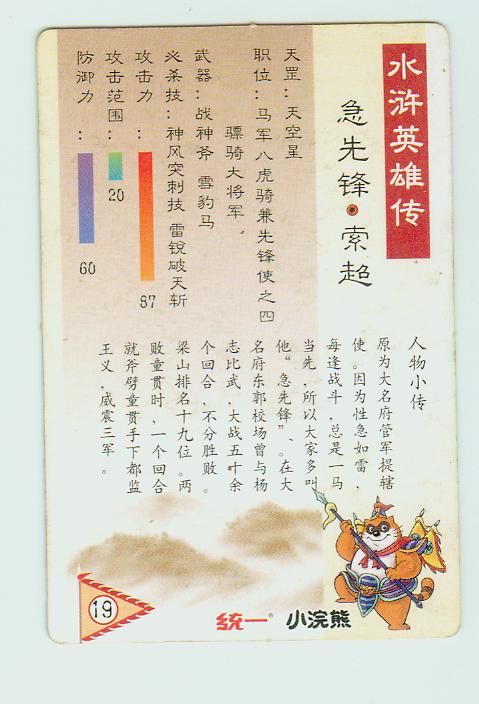 水浒英雄传
急先锋·索超
天罡：天空星
职位：马军八虎骑兼先锋使之四
骠骑大将军
武器：战神斧 雪豹马
必杀技：神风突刺技 雷锐破天斩
攻击力：
87
攻击范围：
20
防御力：
60
人物小传
原为大名府管军提辖
使。因为性急如雷，
每逢战斗，总是一马
当先，所以大家多叫
他“急先锋”、。在大
名府东郭校场曾与杨
志比武，大战五十余
个回合，不分胜败。
梁山排名十九位。两
败童贯时，一个回合
就斧劈童贯手下都监
王义，威震三军。
19
统一® 小浣熊